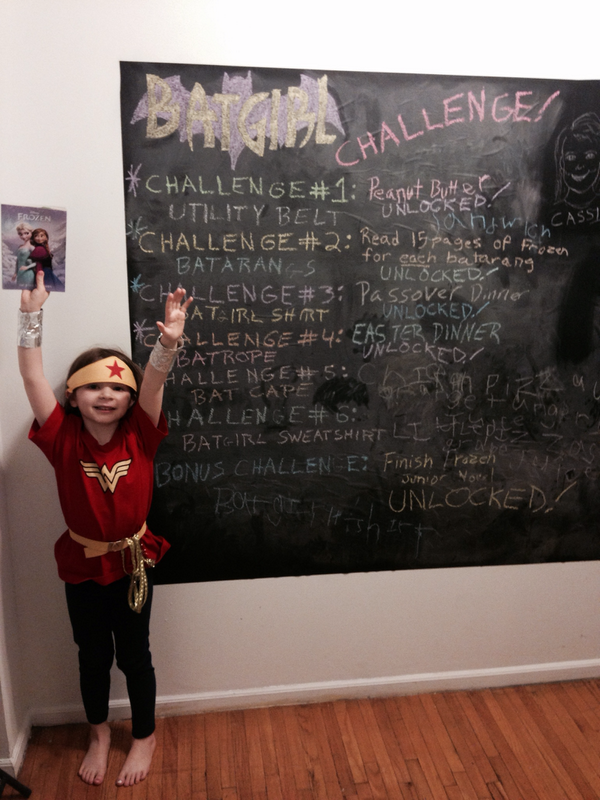 FROZEN
BATGIRL CHALLENGE!
CHALLENGE #1: Peanut Butter
UTILITY BELT UNLOCKED!
Sandwich
CHALLENGE #2: Read 15 pages of Frozen
for each batarang
BATARANGS UNLOCKED!
CHALLENGE #3: Passover Dinner
BATGIRL SHIRT UNLOCKED!
CHALLENGE #4: EASTER DINNER
BATROPE UNLOCKED!
HALLENGE #5:
BAT CAPE
HALLENGE #6:
BATGIRL SWEATSHIRT
BONUS CHALLENGE: Finish Frozen
Junior Novel
UNLOCKED!
CASSI